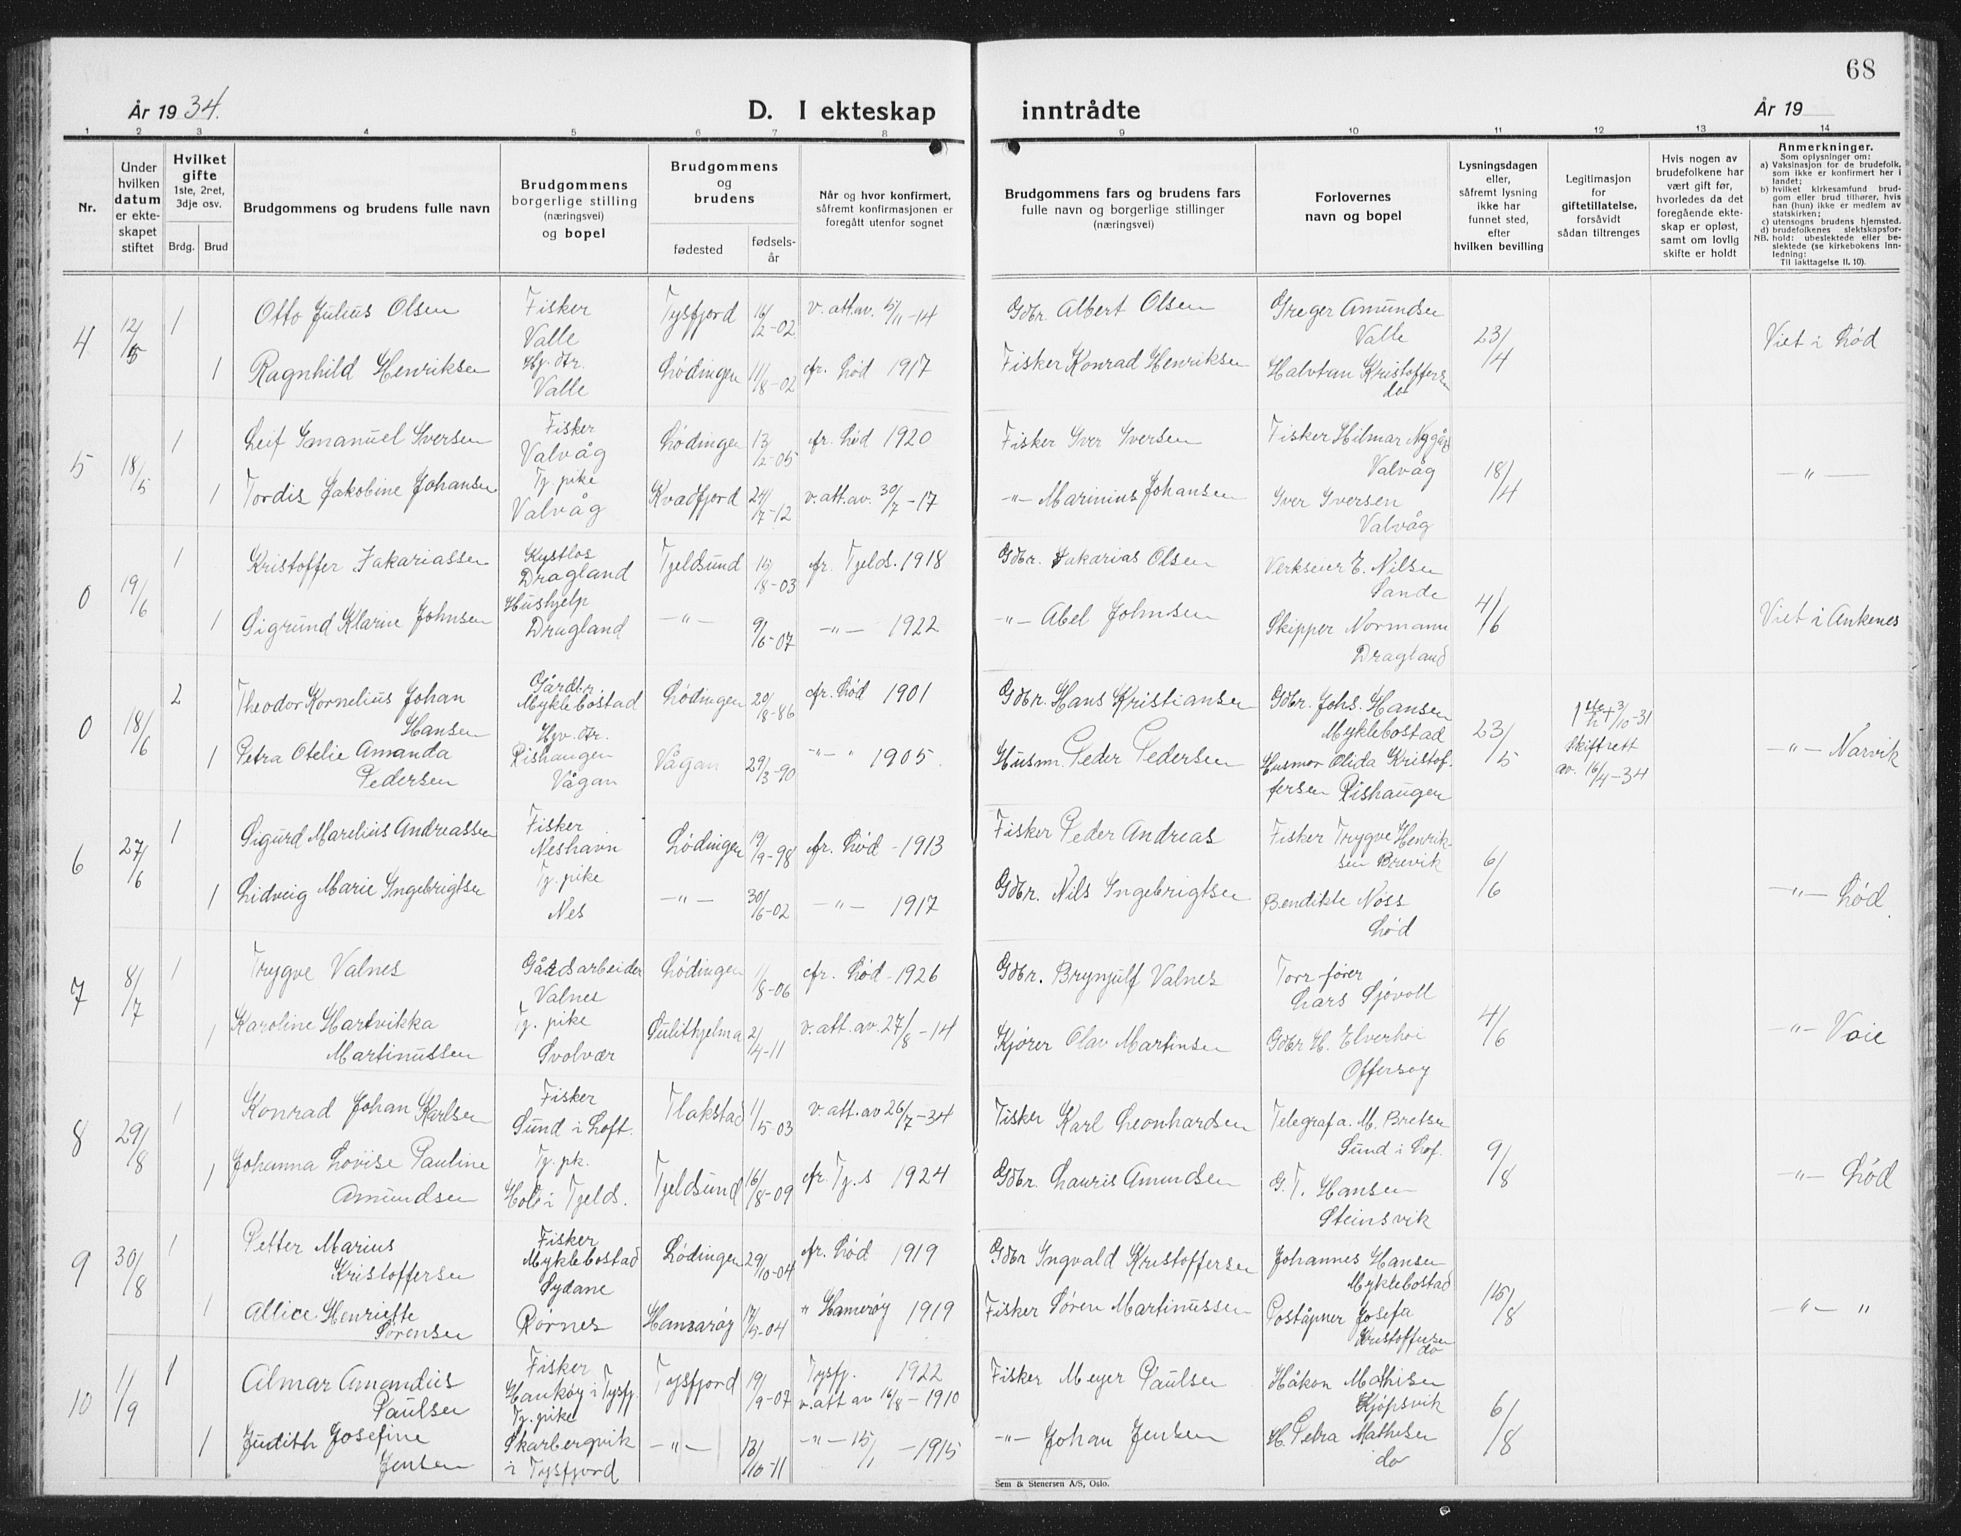 68
År 1934.
D. I ekteskap inntrådte
År 19
1 2 3 4 5 6 7 8 9 10 11 12 13 14
Nr.
Under hvilken datum er ekteskapet stiftet
Hvilket gifte 1ste, 2net, 3dje osv.
Brdg. Brud
Brudgommens og brudens fulle navn
Brudgommens borgerlige stilling (næringsvei) og bopel
Brudgommens og brudens
fødested
fødselsår
Når og hvor konfirmert, såfremt konfirmasjonen er foregått utenfor sognet
Brudgommens fars og brudens fars fulle navn og borgerlige stillinger (næringsvei)
Forlovernes navn og bopel
Lysningsdagen eller, såfremt lysning ikke har funnet sted, efter hvilken bevilling
Legitimasjon for giftetillatelse, forsåvidt sådan tiltrenges
Hvis nogen av brudefolkene har vært gift før, hvorledes da det foregående ekteskap er opløst, samt om lovlig skifte er holdt
Anmerkninger.
Som oplysninger om:
a) Vaksinasjon for de brudefolk, som ikke er konfirmert her i landet;
b) hvilket kirkesamfund brudgom eller brud tilhører, hvis han (hun) ikke er medlem av statskirken;
c) utensogns brudens hjemsted.
d) brudefolkenes slektskapsforhold: ubeslektede eller beslektede (se kirkebokens innledning:
NB. Til iakttagelse II. 10).
4 12/5 1 Otto Julius Olsen Fisker Valle Tysfjord 16/2-02 v. att. av. 5/11-14 Gdbr. Albert Olsen Greger Amundsen Valle 23/4 Viet i Lød
1 Ragnhild Henriksen Hj. dtr. Valle Lødingen 11/8-02 fr. Lød 1917 Fisker Konrad Henriksen Halvtan Kristoffersen do
5 18/5 1 Leif Emanuel Iversen Fisker Valvåg Lødingen 13/2-05 fr. Lød 1920 Fisker Iver Iversen Fisker Hilmar Nygård Valvåg 18/4 -"-
1 Tordis Jakobine Johansen Tj. pike Valvåg Kvædfjord 24/7-12 v. att. av. 30/7-17 -"- Marinius Johansen Iver Iversen Valvåg
0 19/6 1 Kristoffer Zakariassen Kystlos Dragland Tjeldsund 15/8-03 fr. Tjelds. 1918 Gdbr. Zakarias Olsen Verkseier E. Nilsen Sande 4/6 Viet i Ankenes
1 Sigrund Klarine Johnsen Hushjelp Dragland -"- 9/6-07 -"- 1922 -"- Abel Johnsen Skipper Normann Dragland
0 18/6 2 Theodor Kornelius Johan Hansen Gårdbr. Myklebostad Lødingen 20/8-86 fr. Lød 1901 Gdbr. Hans Kristiansen Gdbr. Johs. Hansen Myklebostad 23/5 1ste h + 3/10-31 Skiftrett av. 16/4-34 -"- Narvik
1 Petra Otelie Amanda Pedersen Hjv. dtr. Rishaugen Vågan Vågan 29/3-90 -"- 1905. Husmn. Peder Pedersen Husmor Olida Kristoffersen Rishaugen
6 27/6 1 Sigurd Marelius Andreassen Fisker Neshavn Lødingen 19/9-98 fr. Lød - 1913 Fisker Peder Andreas Fisker Trygve Henriksen Brevik 6/6 -"- Lød.
1 Lidveig Marie Ingebrigtsen Tj. pike Nes -"- 30/6-02 -"- 1917 Gdbr. Nils Ingebrigtsen Bendikte Noss Lød
7 8/7 1 Trygve Valnes Gårdsarbeider Valnes Lødingen 1/8-06 fr. Lød - 1926 Gdbr. Brynjulf Valnes Lars Sjøvoll 4/6 -"- Voie
1 Karoline Hartvikka Martinussen Tj. pike Svolvær Sulithjelma 2/4-11 v. att. av 27/8-14 Kjører Olav Martinsen Gdbr H. Elverhoi Offersøy
8 29/8 1 Konrad Johan Karlsen Fisker Sund i Loft. Flakstad 1/5-03 v. att. av 26/7-34 Fisker Karl Leonhardsen Telegrafa. M. Bretsen Sund i Lof. 9/8 -"- Lød
1 Johanna Lovise Pauline Amundsen Tj. pk. Hol i Tjelds. Tjeldsund 16/8-09 fr. Tj.s 1924 Gdbr. Lauris Amundsen G. T. Hansen Steinsvik
9 30/8 1 Petter Marius Kristoffersen Fisker Myklebostad Lødingen 29/10-04 fr. Lød 1919 Gdbr Ingvald Kristoffersen Johannes Hansen Myklebostad 15/8 -"- "
1 Allice Henriette Sørensen Sydame Rørnes Hamarøy 17/5-04 " Hamerøy 1919 Fisker Søren Martinussen Poståpner Josefa Kristoffersen do
10 1/9 1 Almar Amandus Paulsen Fisker Haukøy i Tysfj. Tysfjord 19/9-07 Tysfj. 1922 v. att av 16/8-1910 Fisker Meyer Paulsen Håkon Mathisen Kjøpsvik 6/8
1 Judith Josefine Jensen Tj. pike Skarbergvik i Tysfjord -"- 13/10-11 -"- 15/1-1915 -"- Johan Jensen H. Petra Mathisen do
Sem & Stenersen A/S, Oslo.